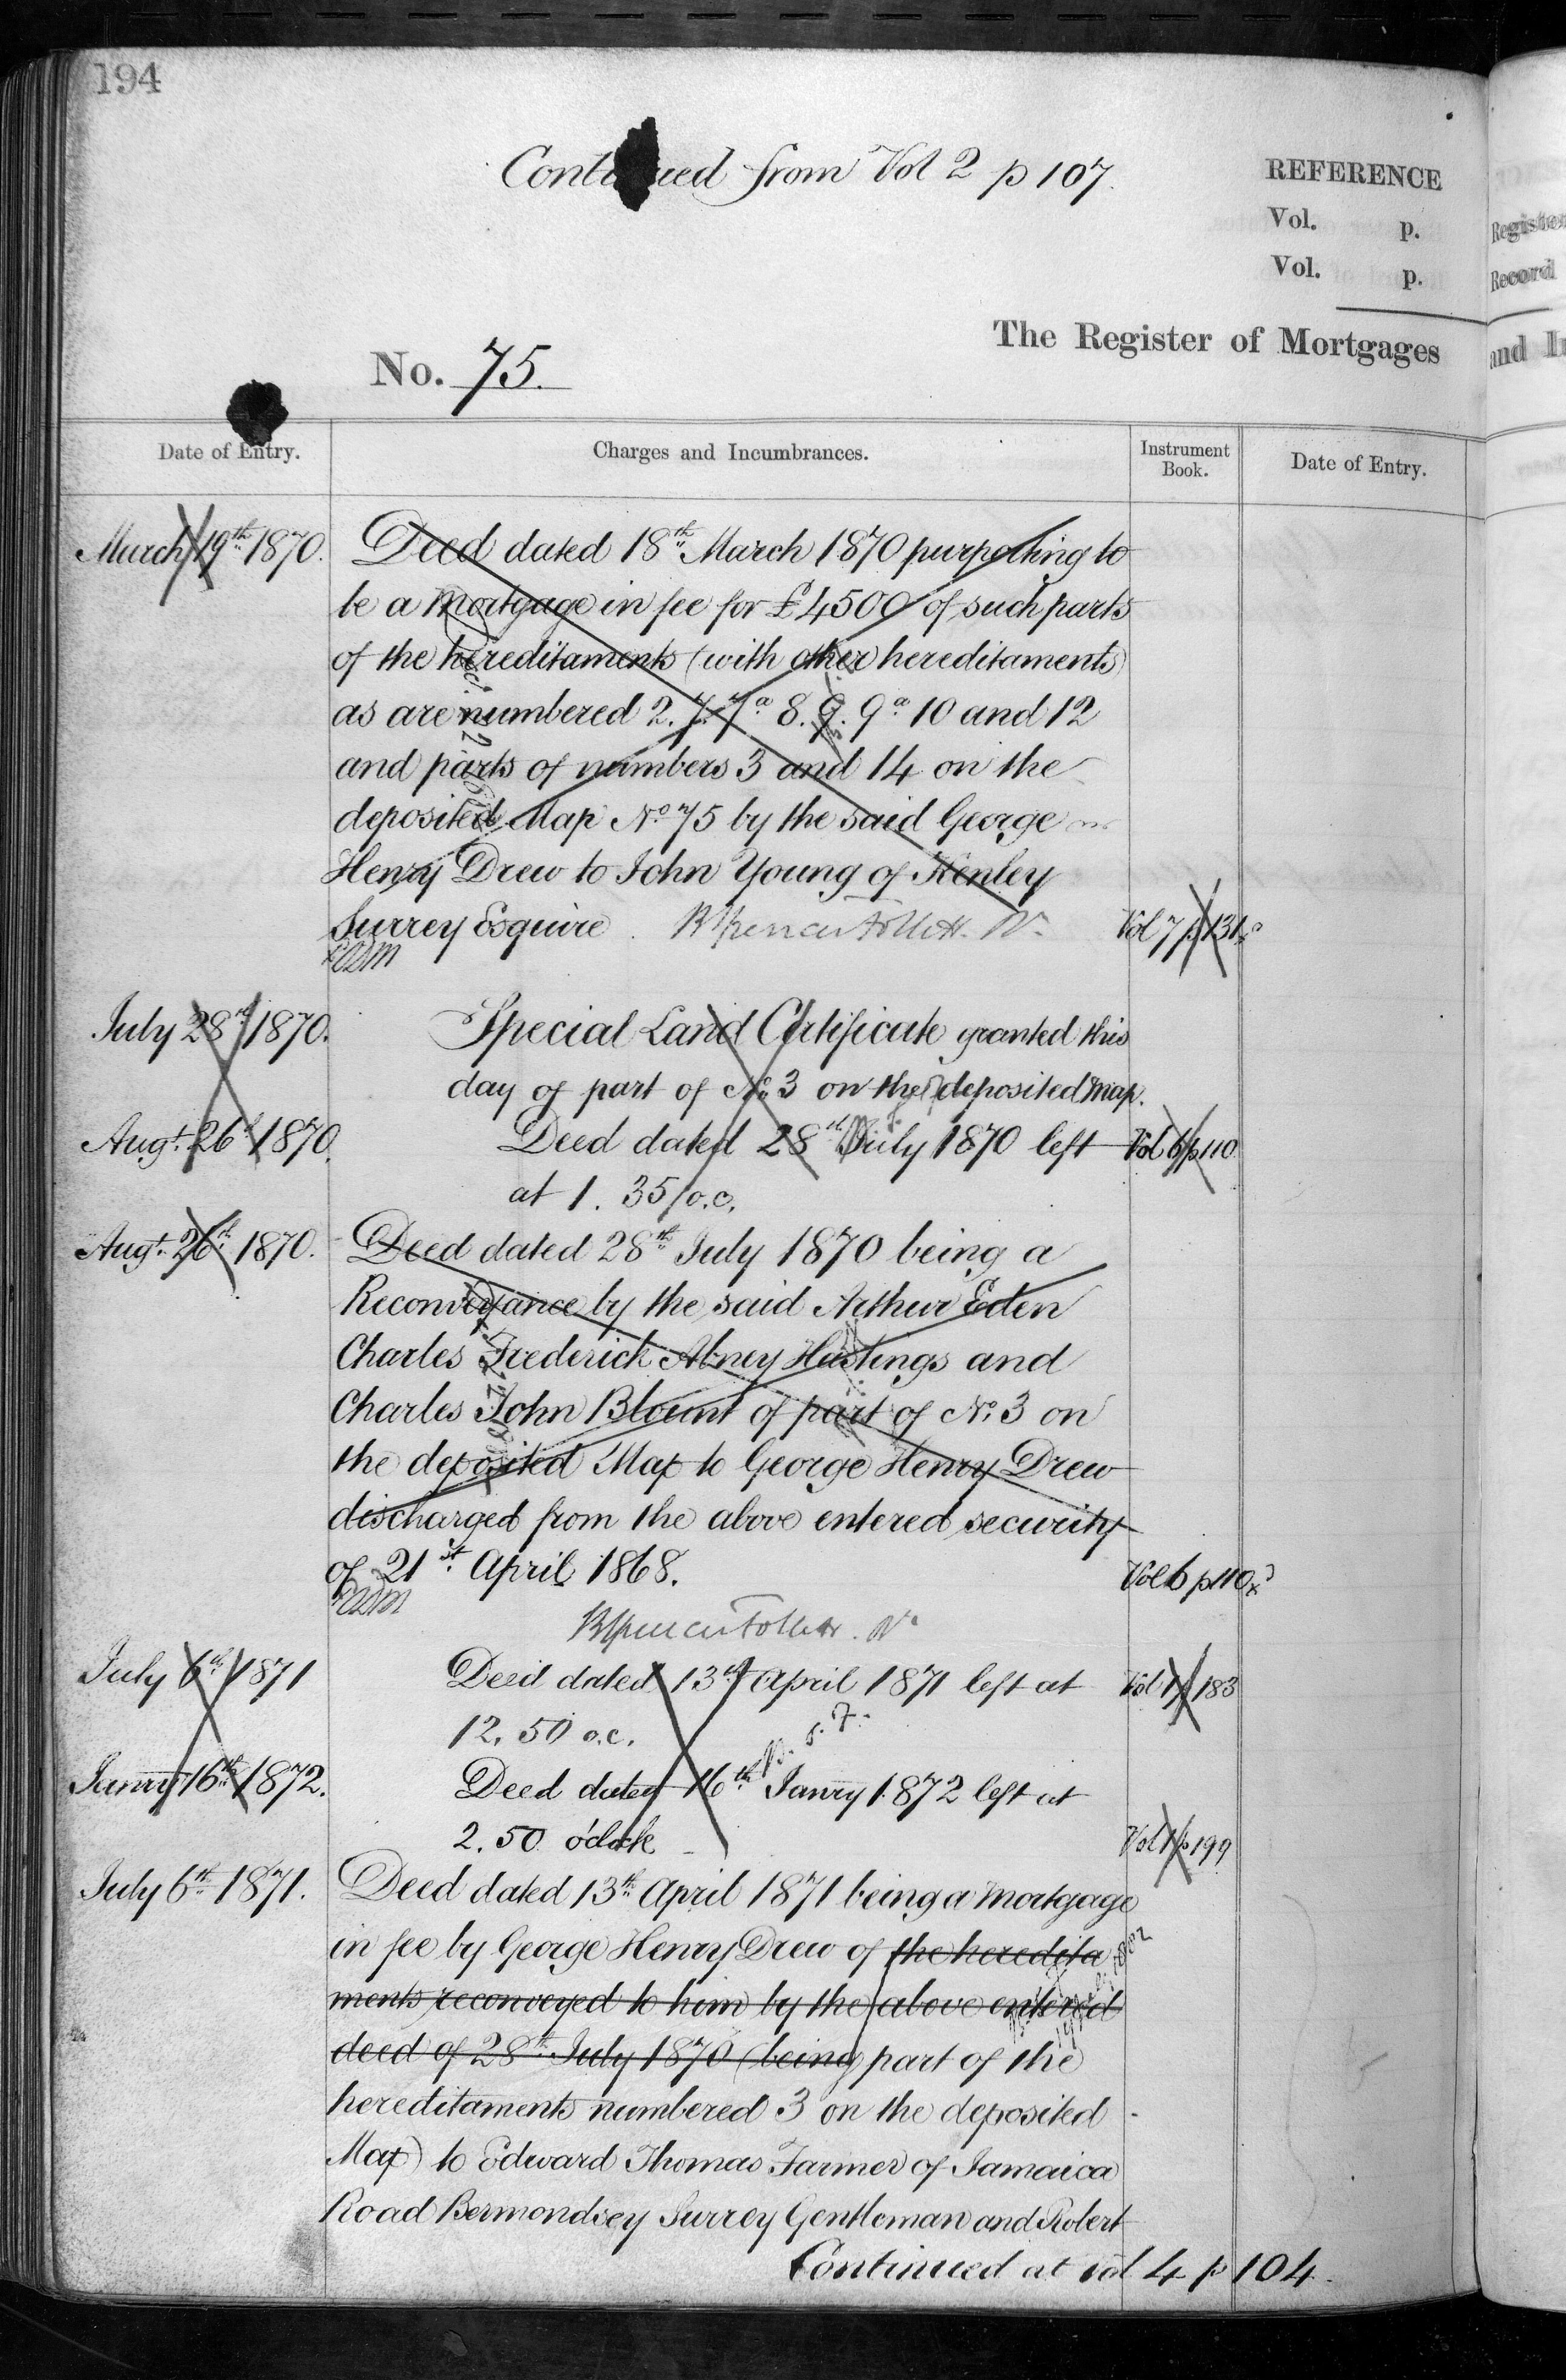 194
Continued from Vol 2 p 107.
REFERENCE
Vol. p.
Vol. p.
The Register of Mortgages
No. 75.
Date of Entry.
Charges and Incumbrances.
Instrument Book.
Date of Entry.
March 19th 1870. Deed dated 18th March 1870 purporting to
be a Mortgage in fee for £4500 of such parts
of the hereditaments (with other hereditaments)
as are numbered 2. 7. 7a 8. 9. 9a 10 and 12
and parts of numbers 3 and 14 on the
deposited Map No 75 by the said George
Henry Drew to John Young of Kenley
Surrey Esquire. Vol 7 p 131
July 28th 1870. Special Land Certificate granted this
day of part of No. 3 on the deposited Map.
Augt. 26th 1870. Deed dated 28th July 1870 left Vol 6 p 110
at 1. 35 o.c.
Augt. 26th 1870. Deed dated 28th July 1870 being a
Reconveyance by the said Arthur Eden
Charles Frederick Abney Hastings and
Charles John Blount of part of No. 3 on
the deposited Map to George Henry Drew
discharged from the above entered security
of 21st April 1868. Vol 6 p 110
July 6th 1871 Deed dated 13th April 1871 left at Vol 1 p 183
12. 50 o.c.
Janry 16th 1872. Deed dated 16th Janry 1872 left at
2. 50 o'clock Vol 1 p 199
July 6th 1871. Deed dated 13th April 1871 being a Mortgage
in fee by George Henry Drew of the heredita
ments reconveyed to him by the above entered
deed of 28th July 1870 (being part of the
hereditaments numbered 3 on the deposited
Map) to Edward Thomas Farmer of Jamaica
Road Bermondsey Surrey Gentleman and Robert
Continued at vol 4 p 104.
Register
Record
and In